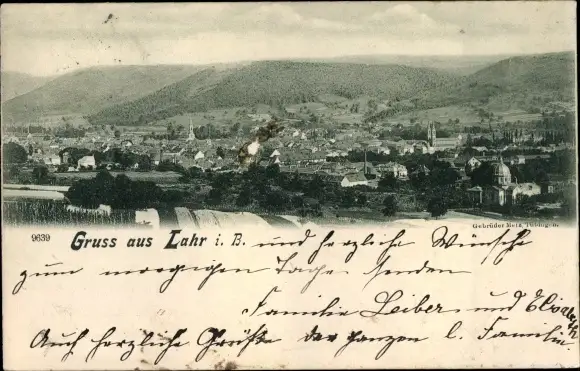 Gebrüder Metz, Tübingen.
9639 Gruss aus Lahr i. B. und herzliche Wünsche
zum morgigen Tage senden
Familie Leiber und Elisabeth
Auch herzliche Grüße der ganzen l. Familie.